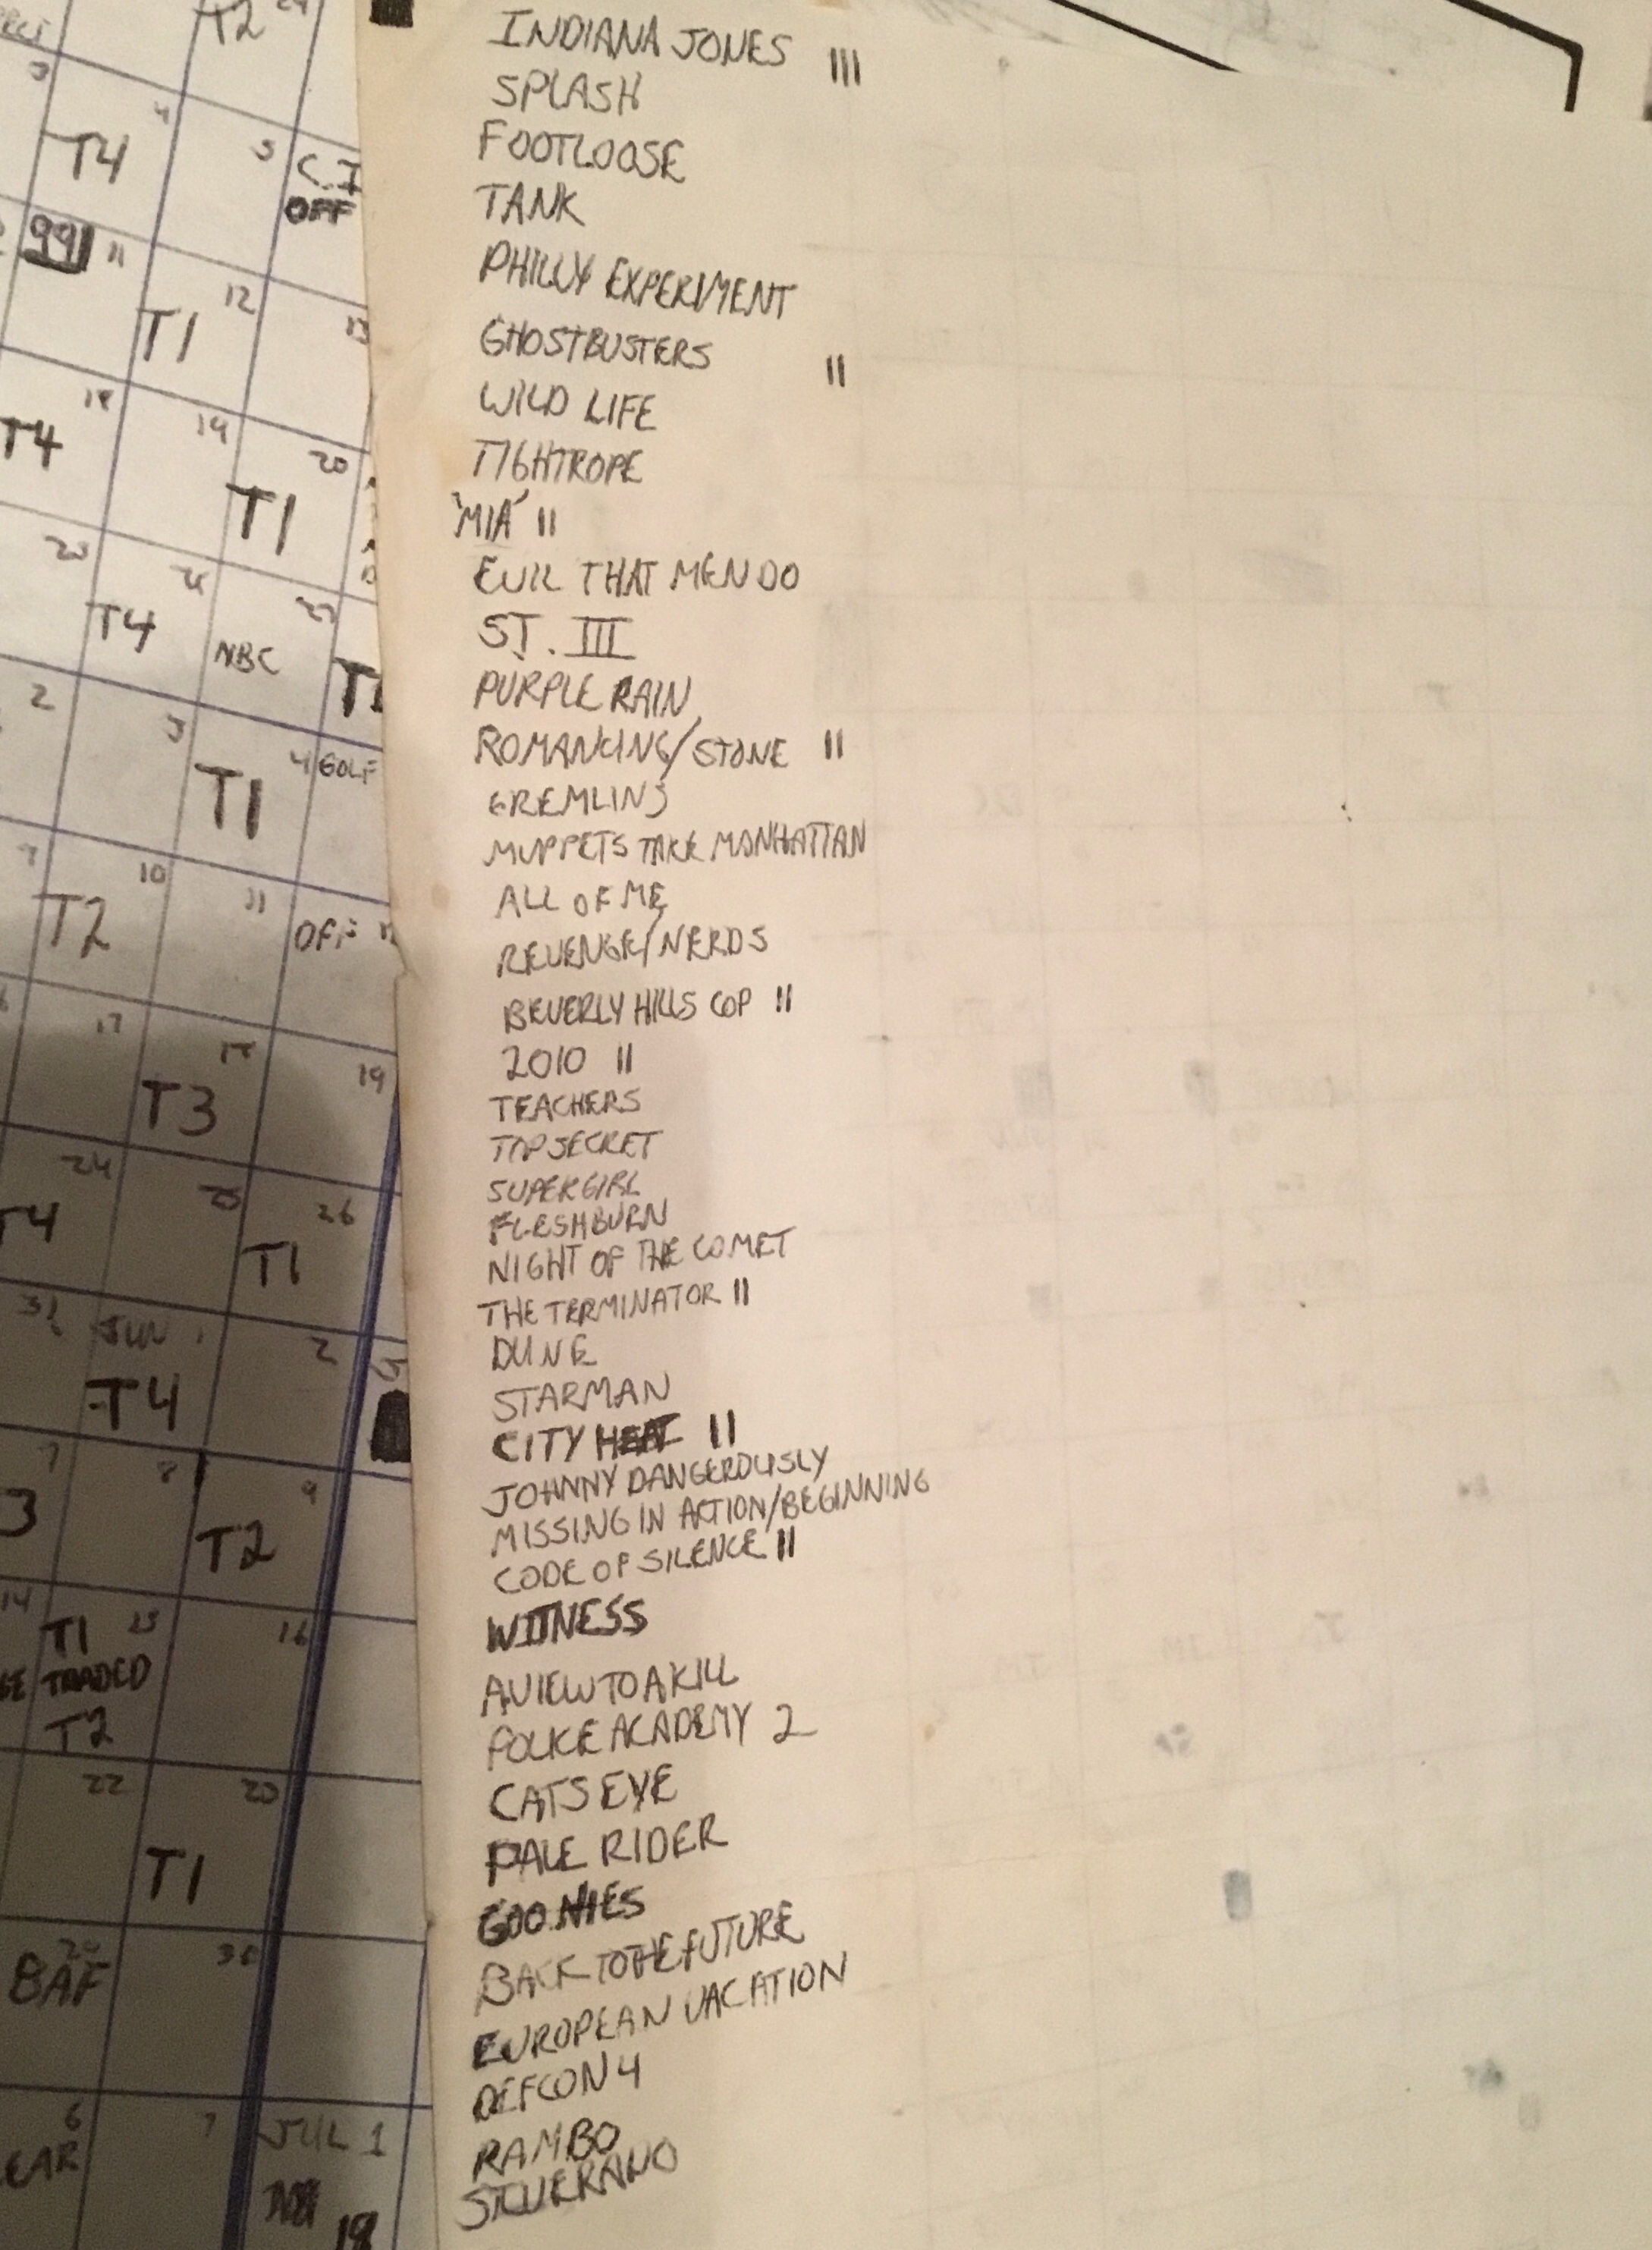 T2
3
4
5
T4
C.I
OFF
991
11
12
13
T1
18
19
20
T4
T1
27
T4
NBC
T1
2
3
4
GOLF
T1
9
10
11
T2
OFF
17
18
19
T3
24
25
26
T4
T1
31
JUN 1
2
T4
7
8
9
3
T2
14
15
16
T1
TRADED
T2
22
23
T1
30
BAF
6
7
JUL 1
EAR
INDIANA JONES III
SPLASH
FOOTLOOSE
TANK
PHILLY EXPERIMENT
GHOSTBUSTERS II
WILD LIFE
TIGHTROPE
'MIA' II
EVIL THAT MEN DO
ST. III
PURPLE RAIN
ROMANCING/STONE II
GREMLINS
MUPPETS TAKE MANHATTAN
ALL OF ME
REVENGE/NERDS
BEVERLY HILLS COP II
2010 II
TEACHERS
TOP SECRET
SUPERGIRL
FLESHBURN
NIGHT OF THE COMET
THE TERMINATOR II
DUNE
STARMAN
CITY HEAT II
JOHNNY DANGEROUSLY
MISSING IN ACTION/BEGINNING
CODE OF SILENCE II
WITNESS
A VIEW TO A KILL
POLICE ACADEMY 2
CATS EYE
PALE RIDER
GOONIES
BACK TO THE FUTURE
EUROPEAN VACATION
DEFCON 4
RAMBO
SILVERADO